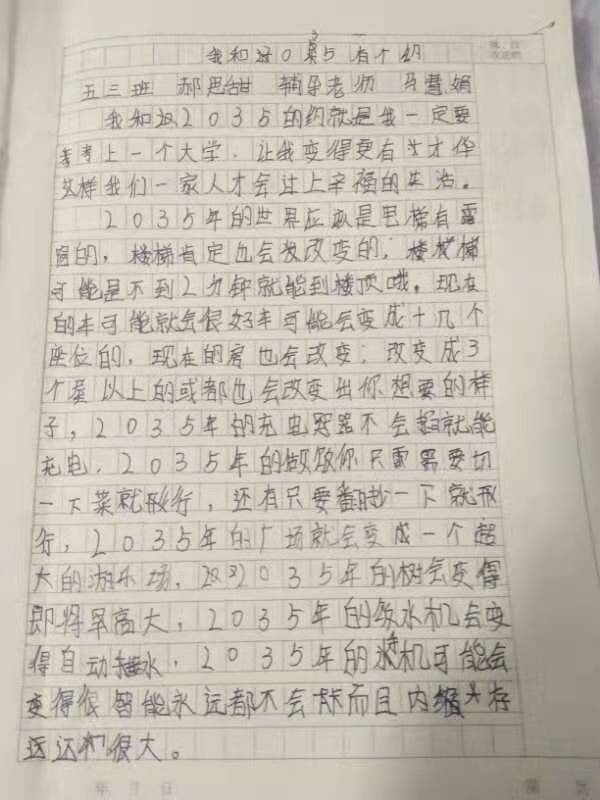 我和2035有个约
五三班 郝思甜 辅导老师 马慧娟
我和2035的约就是我一定要
考上一个大学,让我变得更有才华
这样我们一家人才会过上幸福的生活。
2035年的世界应该是电梯有雷
的,楼梯肯定也会被改变的,楼梯
可能是不到2分钟就能到楼顶哦。现在
的车可能就会很好车可能会变成十几个
座位的,现在的房也会改变:改变成3
个屋以上的或都也会改变出你想要的样
子,2035年的充电器不会就能
充电,2035年的做饭你只需要切
一下菜就形行,还有只要翻炒一下就形
行,2035年的广场就会变成一个超
大的游乐场,2035年的树会变得
即将早高大,2035年的饮水机会变
得自动接水,2035年的手机可能会
变得很智能永远都不会卡而且内存
还很大。
年 月 日